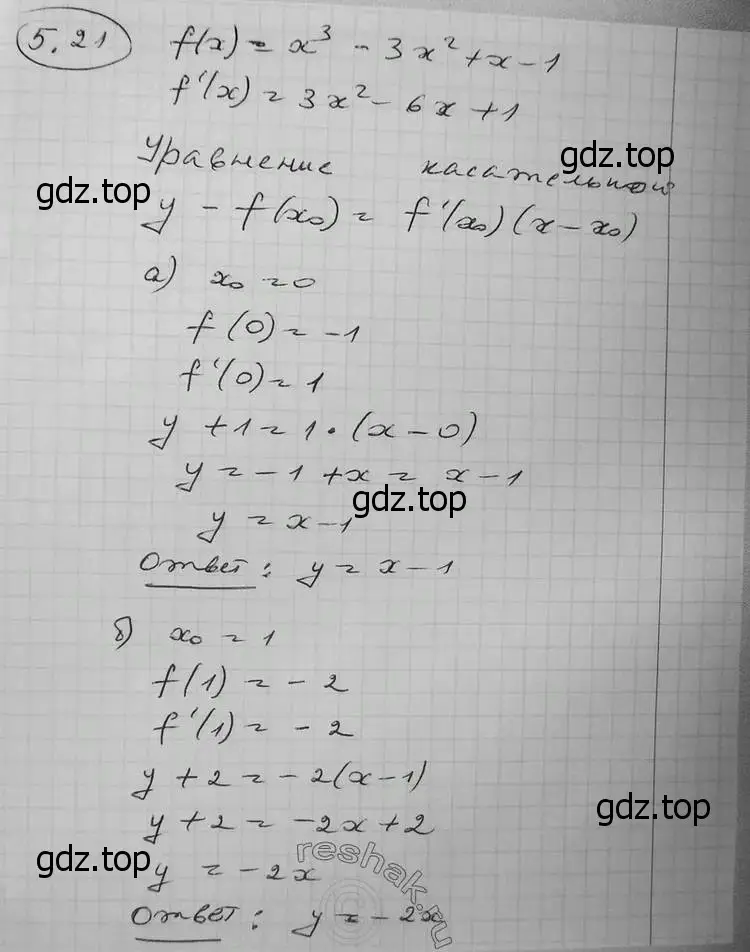 5.21 f(x) = x³ - 3x² + x - 1
f'(x) = 3x² - 6x + 1
Уравнение касательной
gdz.top
gdz.top
y - f(x₀) = f'(x₀)(x - x₀)
а) x₀ = 0
f(0) = -1
f'(0) = 1
y + 1 = 1 · (x - 0)
y = -1 + x = x - 1
gdz.top
y = x - 1
Ответ: y = x - 1
б) x₀ = 1
f(1) = -2
f'(1) = -2
y + 2 = -2(x - 1)
gdz.top
y + 2 = -2x + 2
gdz.top
y = -2x
reshak.ru
Ответ: y = -2x